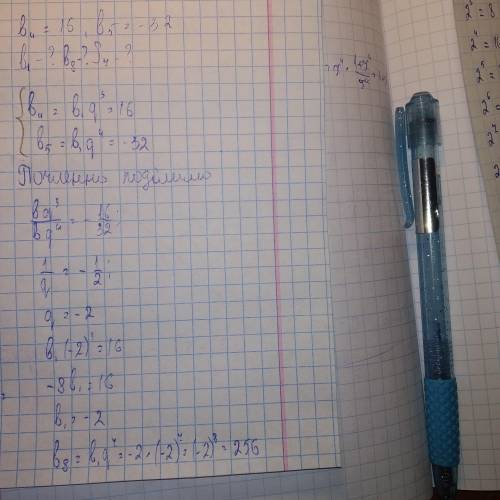 b₄ = 16, b₅ = -32
b₁ - ? b₈ - ? S₇ - ?
b₄ = b₁q³ = 16
b₅ = b₁q⁴ = -32
Почленно поделим
bq³/bq⁴ = -16/32
1/q = -1/2
q = -2
b₁(-2)³ = 16
-8b₁ = 16
b₁ = -2
b₈ = b₁q⁷ = -2 · (-2)⁷ = (-2)⁸ = 256
2³ = 8
2⁴ = 16
2⁵ =
2⁶ =
2⁷
2